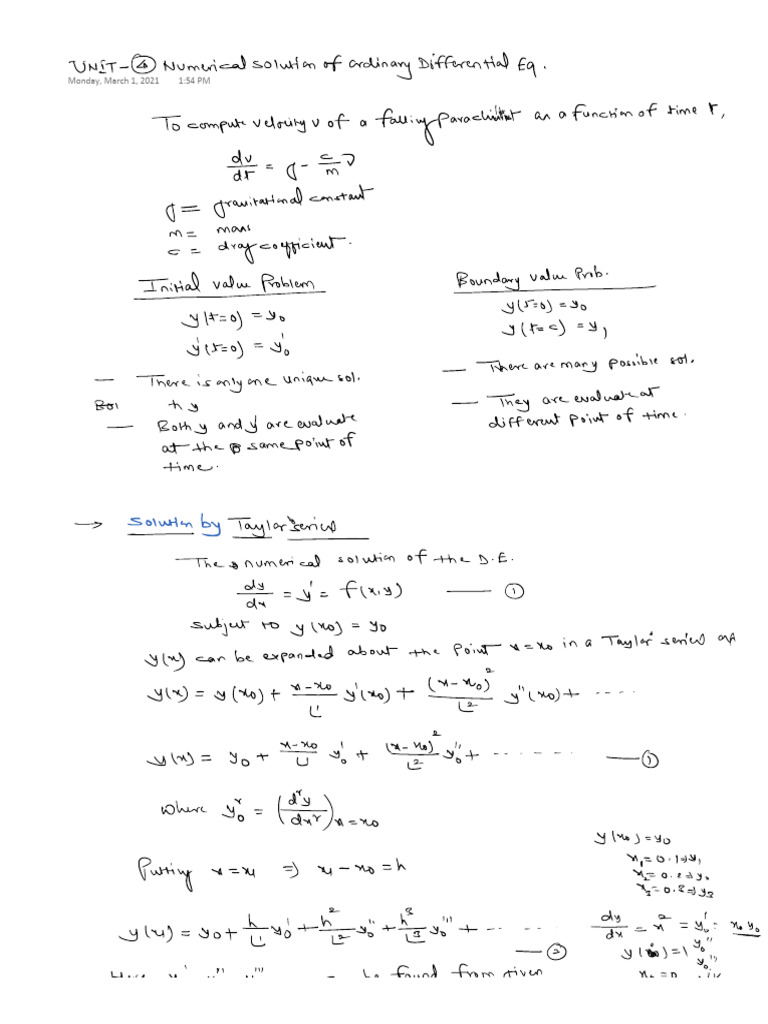 UNIT-④ Numerical solution of ordinary Differential Eq.
Monday, March 1, 2021 1:54 PM
To compute velocity v of a falling Parachutist as a function of time t,
dv/dt = g - c/m v
g = gravitational constant
m = mass
c = drag coefficient.
Initial value Problem
y(t=0) = y₀
y'(t=0) = y₀'
— There is only one unique sol.
— Both y and y' are evaluate
at the same point of
time.
Boundary value Prob.
y(t=0) = y₀
y(t=c) = y₁
— There are many possible sol.
— They are evaluate at
different point of time.
→ Solution by Taylor's series
The numerical solution of the D.E.
dy/dx = y' = f(x,y) — ①
subject to y(x₀) = y₀
y(x) can be expanded about the point x = x₀ in a Taylor's series as
y(x) = y(x₀) + (x-x₀)/⌊1 y'(x₀) + (x-x₀)²/⌊2 y''(x₀) + ....
y(x) = y₀ + (x-x₀)/⌊1 y₀' + (x-x₀)²/⌊2 y₀'' + ...... — ①
where y₀ʳ = (dʳy/dxʳ) x=x₀
Putting x = x₁ ⇒ x₁ - x₀ = h
y(x₁) = y₀ + h/⌊1 y₀' + h²/⌊2 y₀'' + h³/⌊3 y₀''' + ...... — ②
y(x₀) = y₀
x₁ = 0.1 ⇒ y₁
x₂ = 0.2 ⇒ y₂
dy/dx = x² = y₀' = x₀ y₀
y₀''
y₀'''
to found from given